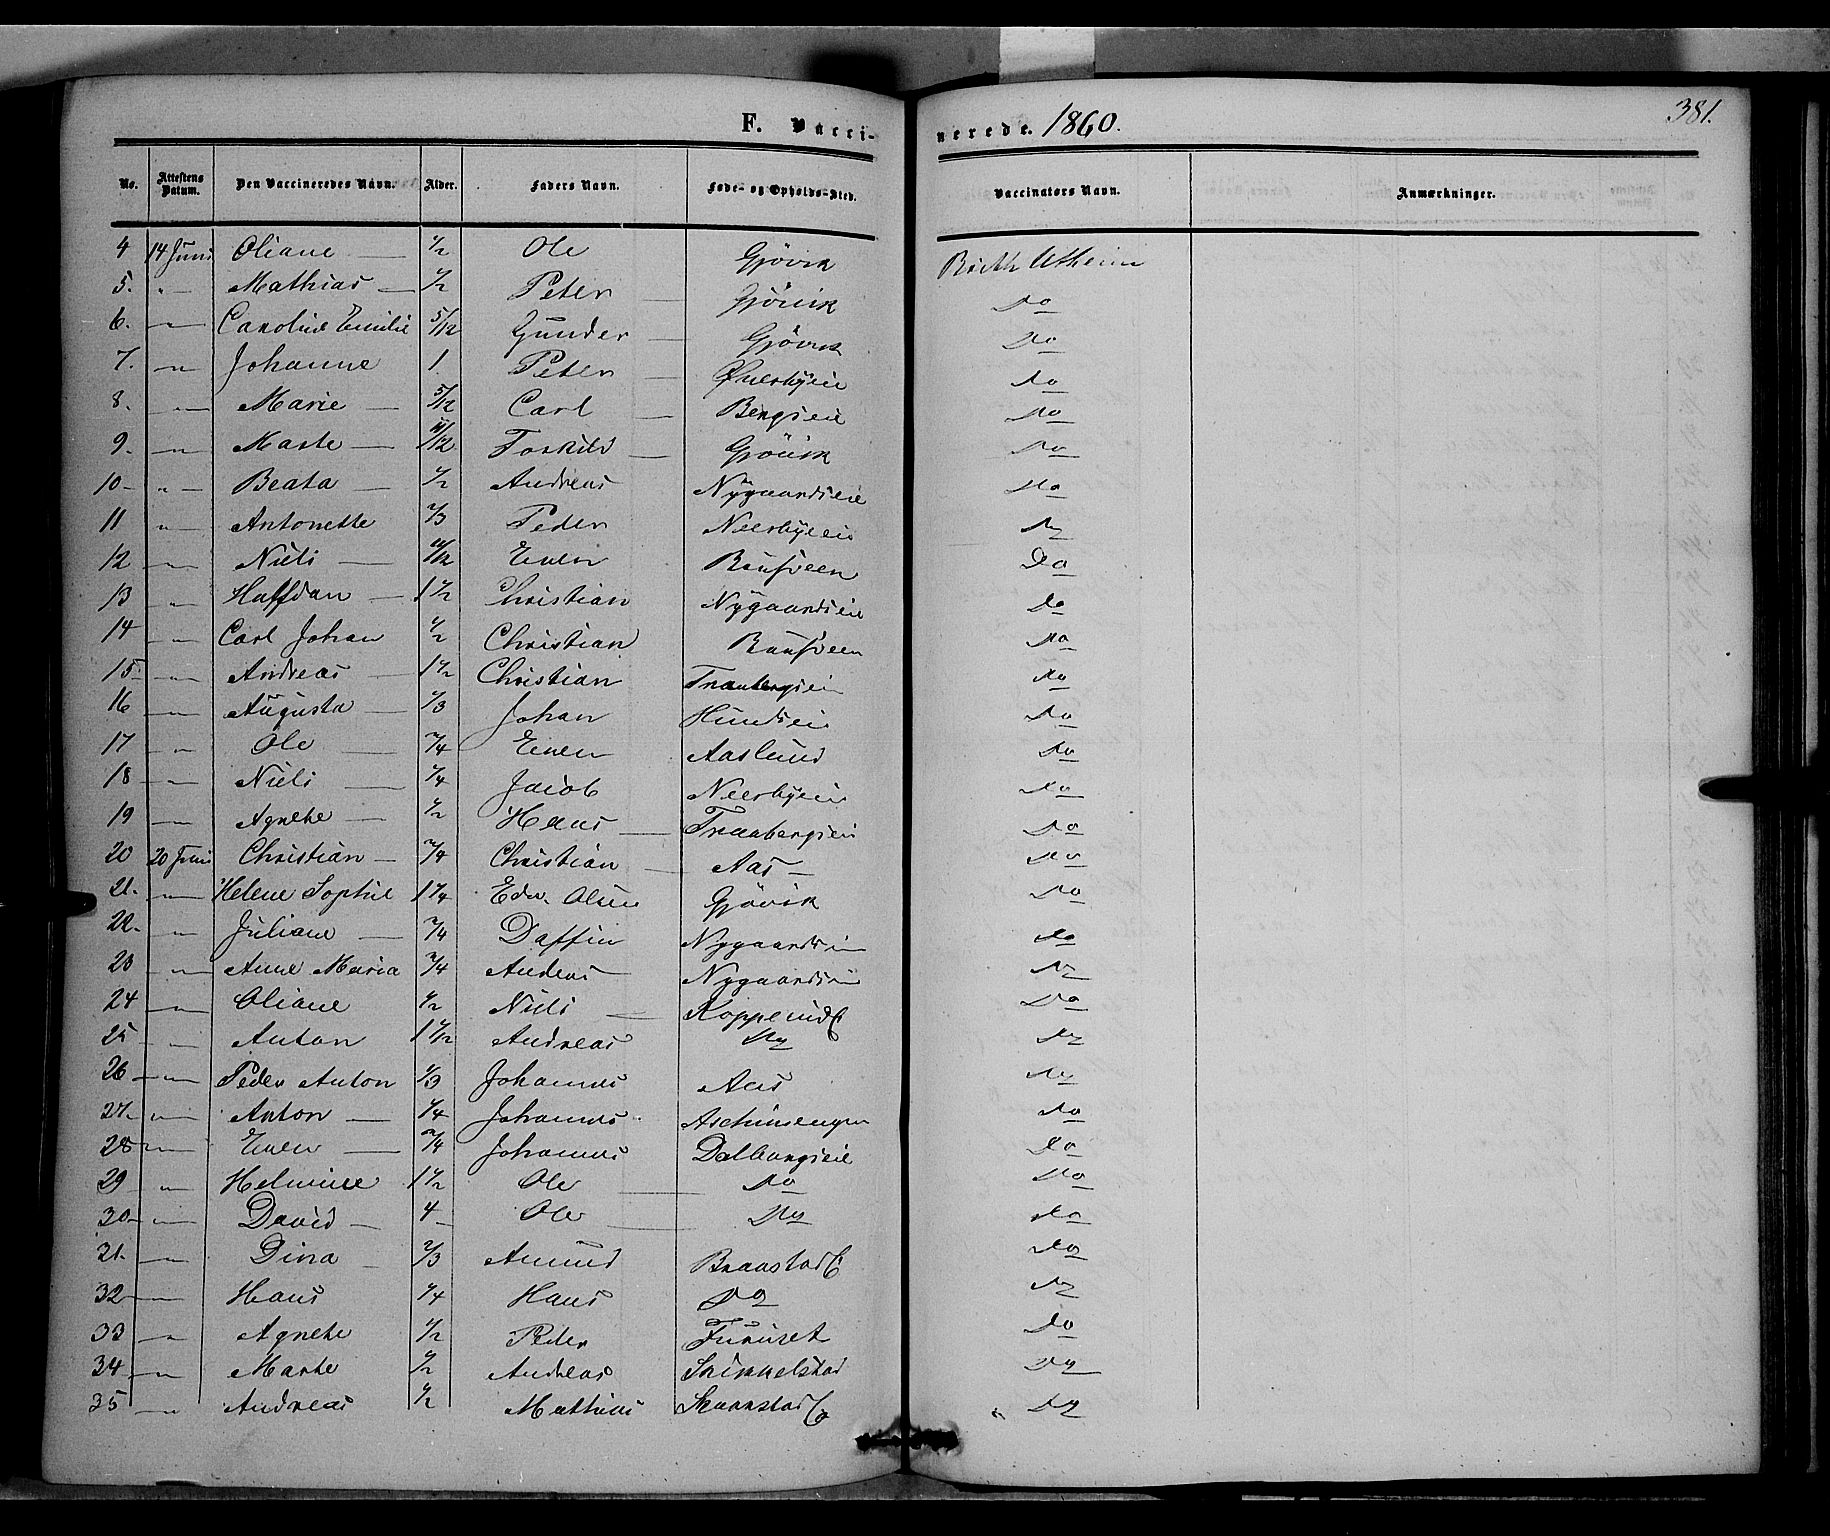 F. Vaccinerede. 1860.
381.
No. Attestens Datum. Den Vaccineredes Navn. Alder. Faders Navn. Føde- og Opholds-Sted. Vaccinators Navn. Anmærkninger.
4 14 Juni Oliane — 1/2 Ole Gjøvik
5. " Mathias — 1/2 Peter — Gjövik Do
6. " Caroline Emilie 5/12 Gunder — Gjøvik Do
7. " Johanne 1. Peter — Øverbyeie Do
8. " Marie — 5/12 Carl — Bergseie Do
9. " Marte — 11/12 Torkild — Gjövik Do
10 " Beata — 1/2 Andreas Nygaardseie Do
11 " Antonette 2/3 Peder Neerbyeie Do
12 " Niels — Even Do
13 " Halfdan — 1 1/2 Christian Nygaardseie Do
14 " Carl Johan 1/2 Christian Do
15 " Andreas — 1 1/2 Christian Do
16 " Augusta — 1/3 Johan Hundseie Do
17 " Ole — 3/4 Even Aaslund Do
18 " Niels — 1/4 Jacob Neerbyeie Do
19 " Agnethe — 1/2 Hans — Traabergseie Do
20 20 Juni Christian — 3/4 Christian — Aas — Do
21. " Helene Sophie 1 1/4 Edv. Olsen Gjövik Do
22. " Juliane — 3/4 Daffin Nygaardseie Do
23 " Anne Maria 3/4 Andreas Nygaardseie Do
24 " Oliane 1/2 Niels — Do
25 " Anton Andreas Do Do
26 " Peder Anton 1/3 Johannes Aas Do
27. " Anton — 1/4 Johannes Do
28 " Even — 3/4 Johannes Dalborgseie Do
29 " Helmine 1 1/2 Ole — Do Do
30 " David — 4 Ole — Do Do
31. " Dina — 2/3 Amund Do
32 " Hans 1/4 Hans Do Do
33 " Agnethe 1/2 Peder Furuset Do
34 " Marte 1/2 Andreas Skikkelstad Do
35 " Andreas 1/2 Mathias Do